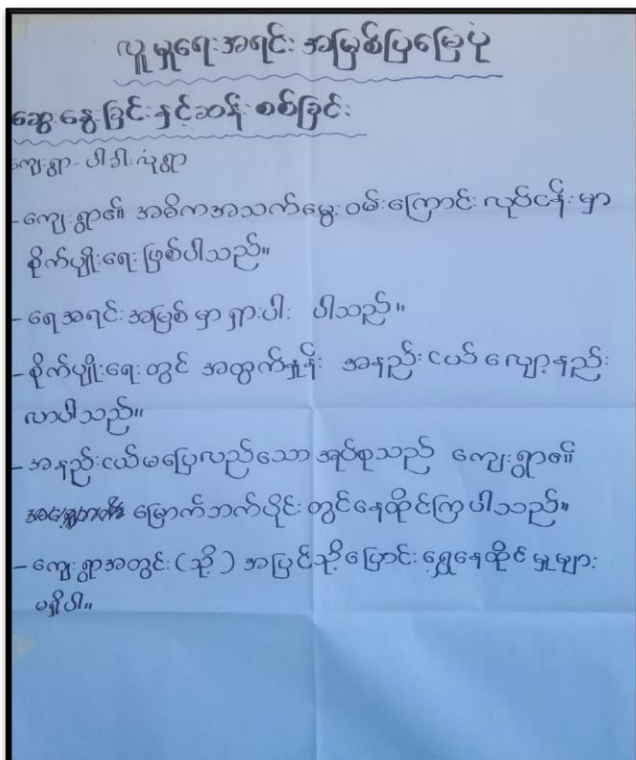 လူမှုရေးအရင်းအမြစ်ပြမြေပုံ
ဆွေးနွေးခြင်းနှင့်ဆန်းစစ်ခြင်း
ကျေးရွာ - ပါဒါးယုံရွာ
- ကျေးရွာ၏ အဓိကအသက်မွေးဝမ်းကြောင်းလုပ်ငန်းမှာ
စိုက်ပျိုးရေးဖြစ်ပါသည်။
- ရေအရင်းအမြစ်မှာရှားပါး ပါသည်။
- စိုက်ပျိုးရေးတွင် အထွက်နှုန်း အနည်းငယ် လျော့နည်း
လာပါသည်။
- အနည်းငယ်မပြေလည်သောအုပ်စုသည် ကျေးရွာ၏
မြောက်ဘက်ပိုင်းတွင်နေထိုင်ကြပါသည်။
- ကျေးရွာအတွင်း (သို့) အပြင်သို့ပြောင်းရွှေ့နေထိုင်မှုများ
မရှိပါ။